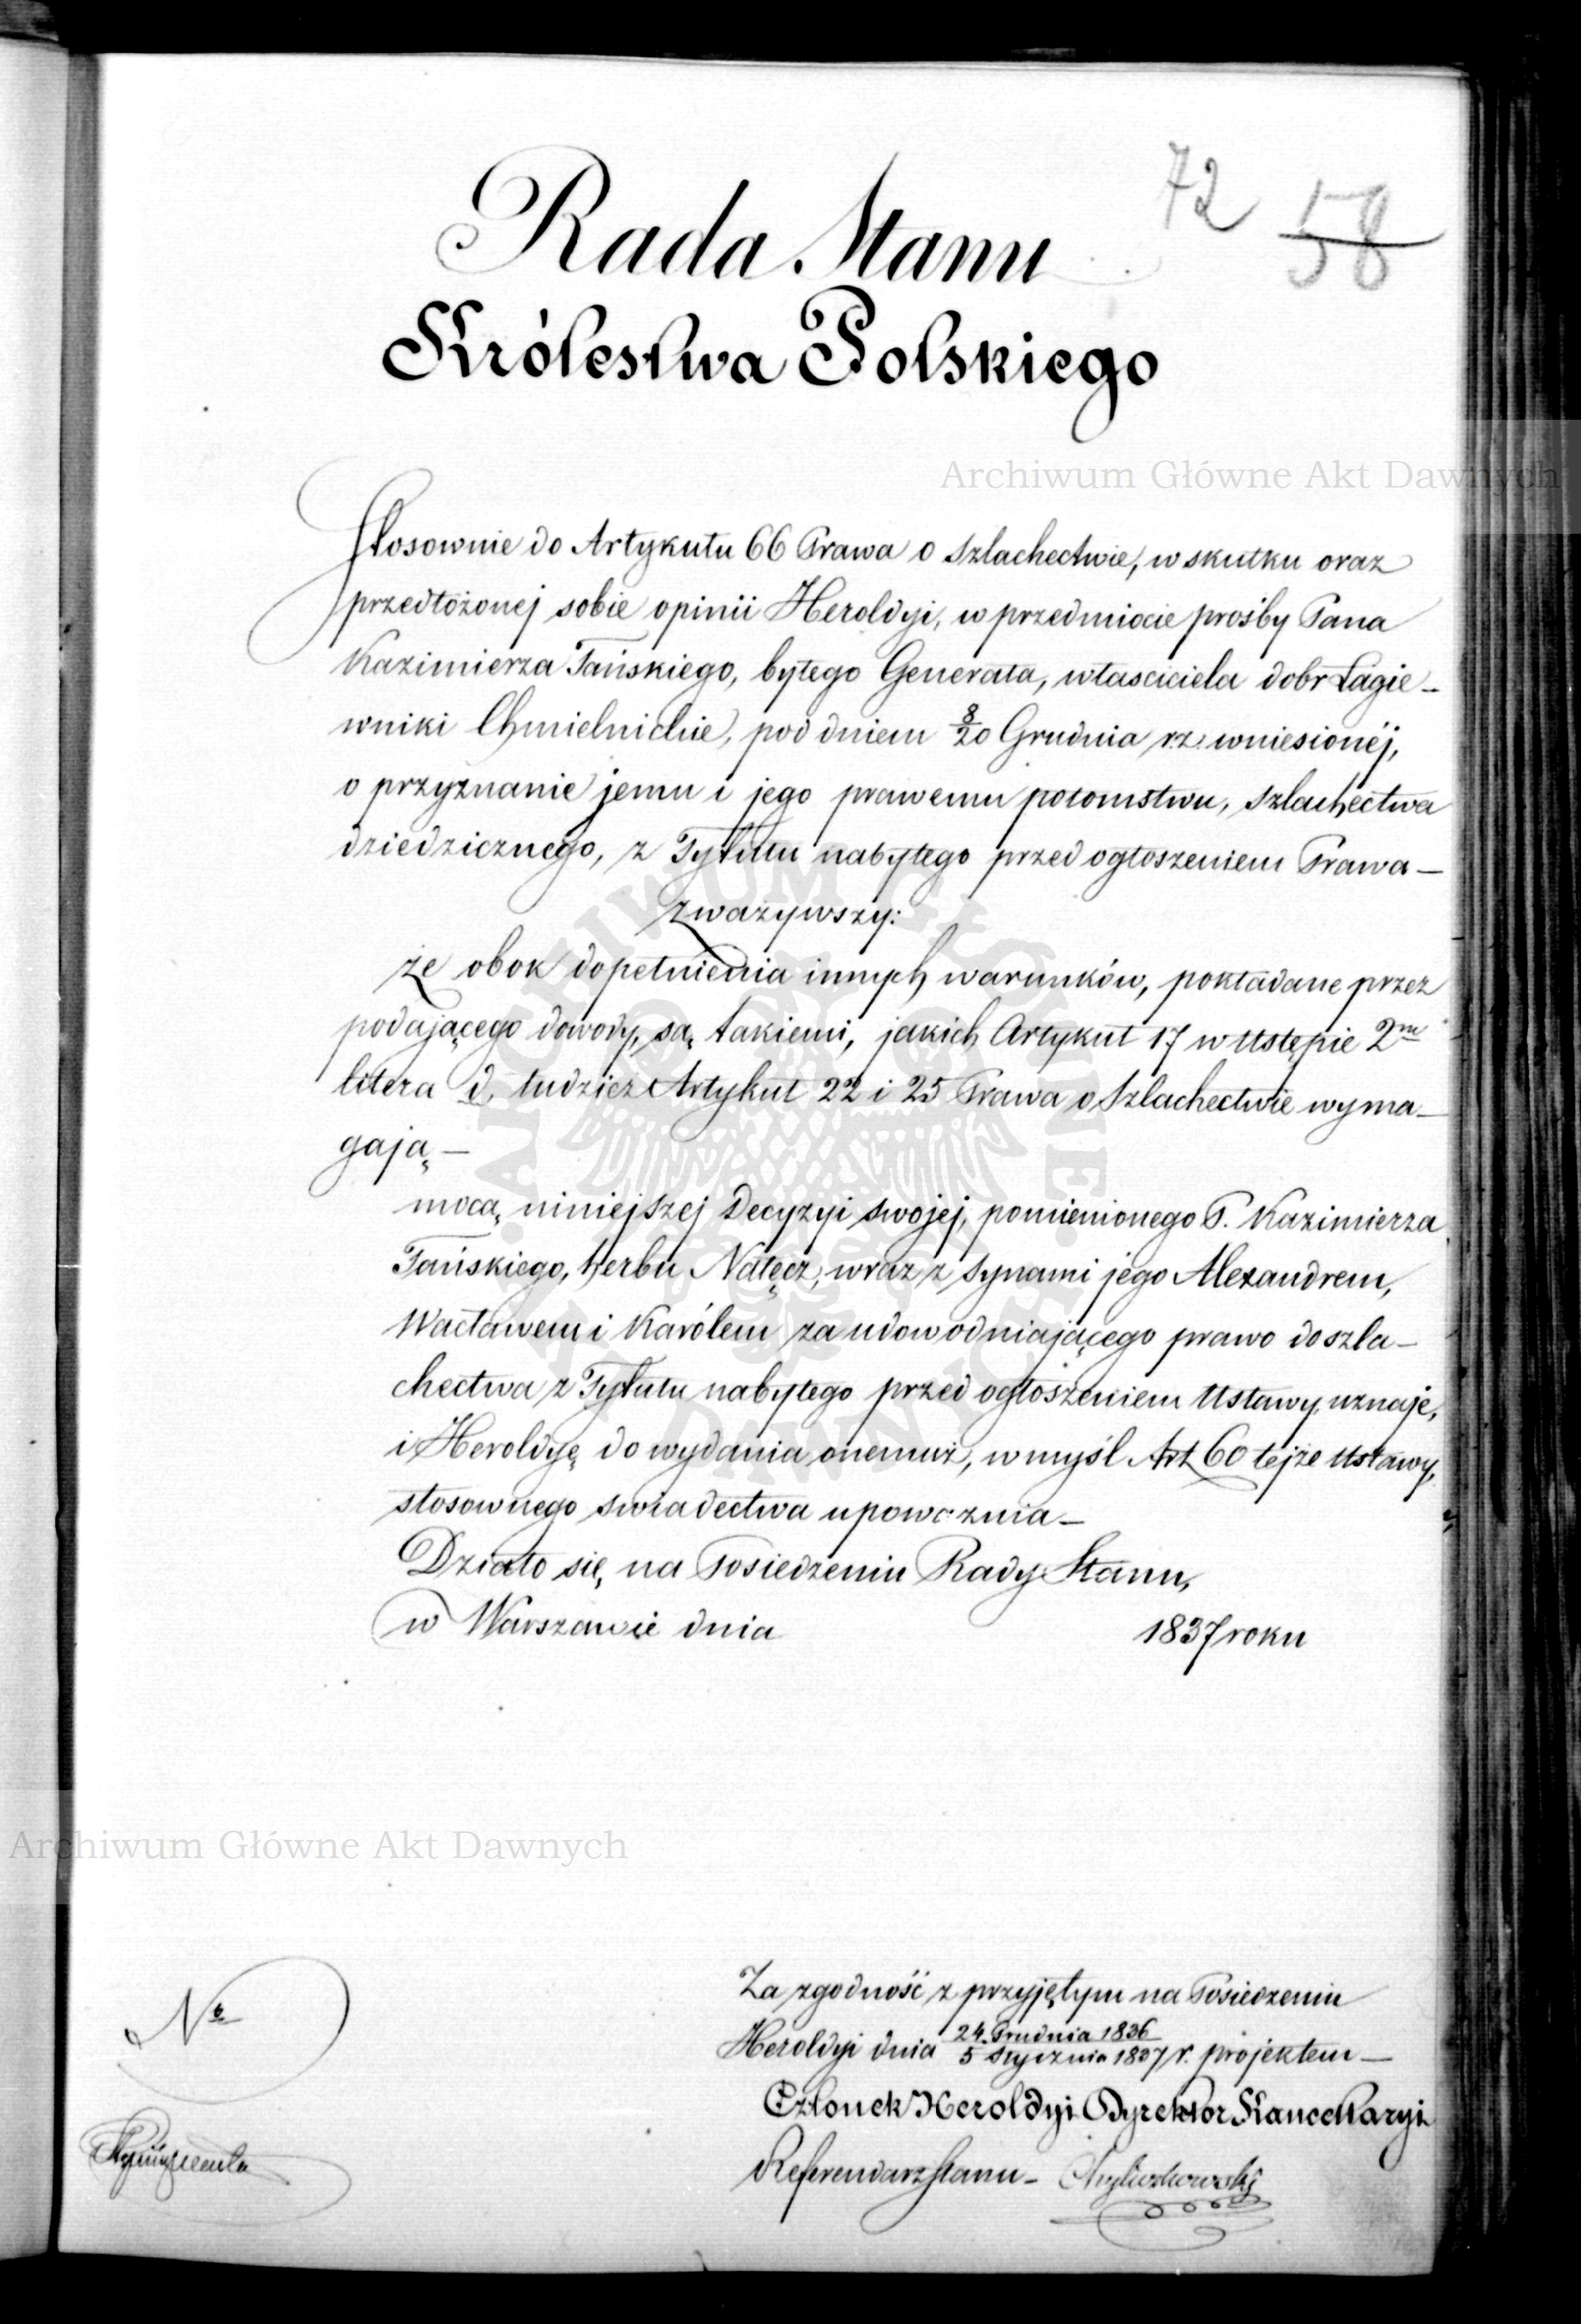 72 58
Rada Stanu
Królestwa Polskiego
Archiwum Główne Akt Dawnych
Stosownie do Artykułu 66 Prawa o Szlachectwie, w skutku oraz
przedłożonej sobie opinii Heroldyi, w przedmiocie prośby Pana
Kazimierza Tańskiego, byłego Generała, własciciela dobr Łagie-
wniki Chmielnickie, pod dniem 8/20 Grudnia r.z. wniesionéj,
o przyznanie jemu i jego prawemu potomstwu, szlachectwa
dziedzicznego, z Tytułu nabytego przed ogłoszeniem Prawa—
zważywszy:
że obok dopełnienia innych warunków, pokładane przez
podającego dowody, są takiemi, jakich Artykuł 17 w Ustępie 2m
litera d, tudzież Artykuł 22 i 25 Prawa o Szlachectwie wyma-
gają—
mocą niniejszej Decyzyi swojej, pomienionego P. Kazimierza
Tańskiego, herbu Nałęcz, wraz z synami jego Alexandrem,
Wacławem i Karólem za udowodniającego prawo do szla-
chectwa z Tytułu nabytego przed ogłoszeniem Ustawy, uznaje,
i Heroldyę do wydania onemuż, w myśl Art 60 tejże Ustawy,
stosownego swiadectwa upoważnia—
Działo się na Posiedzeniu Rady Stanu,
w Warszawie dnia 1837 roku
Archiwum Główne Akt Dawnych
Za zgodność z przyjętym na Posiedzeniu
Heroldyi dnia 24 Grudnia 1836 / 5 Stycznia 1837 r. projektem—
Członek Heroldyi Dyrektor Kancellaryi
Referendarz Stanu—
Nr
ARCHIWUM GŁÓWNE AKT DAWNYCH